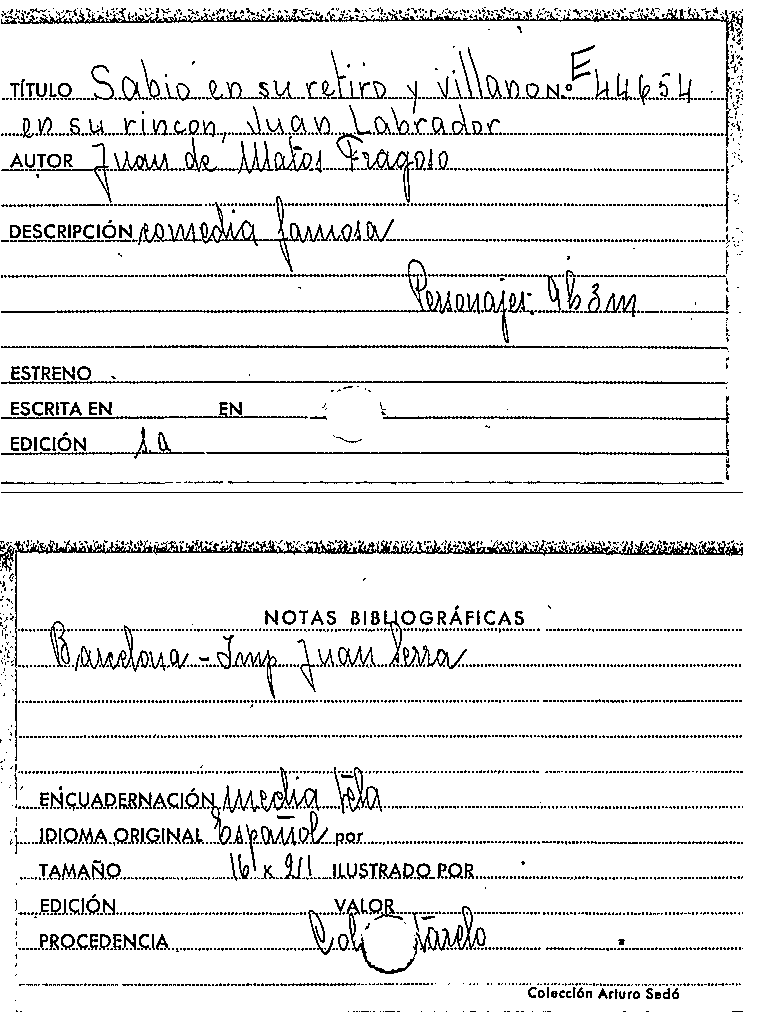 TÍTULO Sabio en su retiro y villano N.º E 44654
en su rincon, Juan Labrador
AUTOR Juan de Matos Fragoso
DESCRIPCIÓN comedia famosa
Personajes: 9h3m
ESTRENO
ESCRITA EN EN
EDICIÓN s.a
NOTAS BIBLIOGRÁFICAS
Barcelona - Imp Juan Serra
ENCUADERNACIÓN media tela
IDIOMA ORIGINAL Español por
TAMAÑO 16 x 21 ILUSTRADO POR
EDICIÓN VALOR
PROCEDENCIA Col tarelo
Colección Arturo Sedó